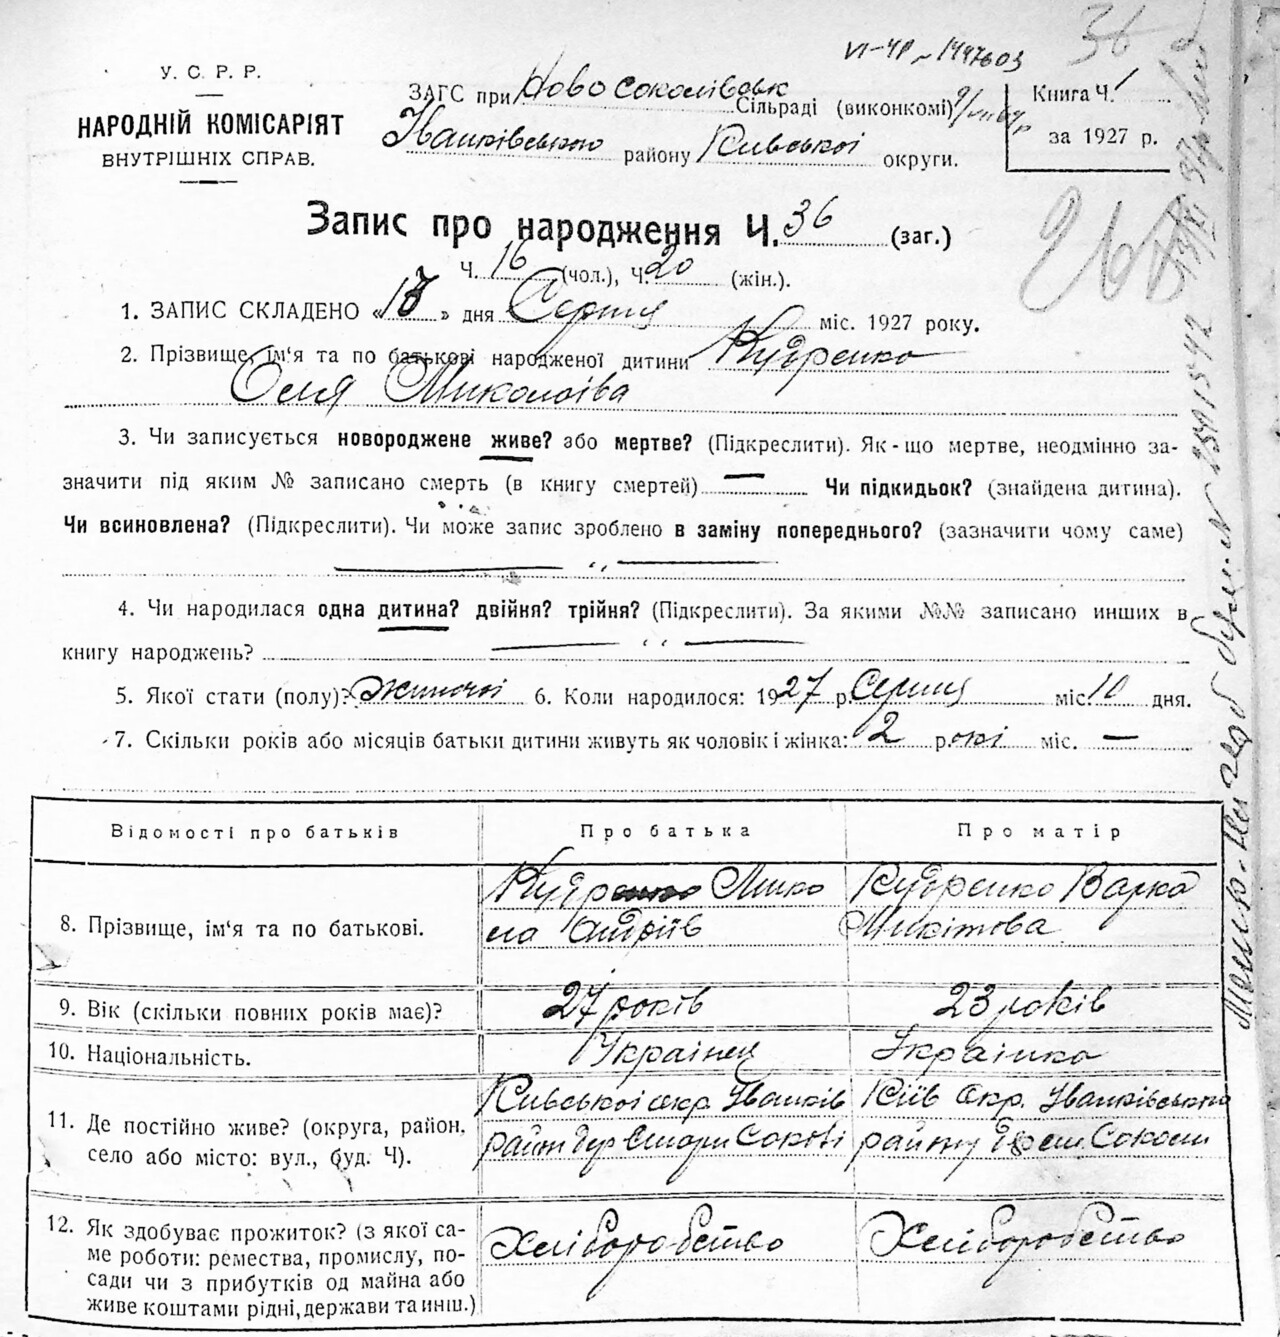 36
VI-ЧР № 1447603
У. С. Р. Р.
НАРОДНІЙ КОМІСАРІЯТ
ВНУТРІШНІХ СПРАВ.
ЗАГС при Новосоколівськ Сільраді (виконкомі)
Іванківського району Київської округи.
Книга Ч. 1
за 1927 р.
Запис про народження Ч. 36 (заг.)
Ч. 16 (чол.), Ч. 20 (жін.).
1. ЗАПИС СКЛАДЕНО « » дня Серпня міс. 1927 року.
2. Прізвище, ім‘я та по батькові народженої дитини Кудренко
Оля Миколаіва
3. Чи записується новороджене живе? або мертве? (Підкреслити). Як-що мертве, неодмінно за-
значити під яким № записано смерть (в книгу смертей) — Чи підкидьок? (знайдена дитина).
Чи всиновлена? (Підкреслити). Чи може запис зроблено в заміну попереднього? (зазначити чому саме)
4. Чи народилася одна дитина? двійня? трійня? (Підкреслити). За якими №№ записано инших в
книгу народжень?
5. Якої стати (полу)? Жиночоі 6. Коли народилося: 1927 р. Серпня міс. 10 дня.
7. Скільки років або місяців батьки дитини живуть як чоловік і жінка: 2 рокі міс. —
Відомості про батьків Про батька Про матір
8. Прізвище, ім‘я та по батькові.
Кудренко Мико
ла Андріів
Кудренко Варка
Микітова
9. Вік (скільки повних років має)? 27 років 23 років
10. Національність. Украінец Украінка
11. Де постійно живе? (округа, район,
село або місто: вул., буд. Ч).
Київськоі окр. Іванків
район дер Стари Сокові
Київ окр. Іванківського
району
12. Як здобуває прожиток? (з якої са-
ме роботи: ремества, промислу, по-
сади чи з прибутків од майна або
живе коштами рідні, держави та инш.)
Хліборобство
Хліборобство